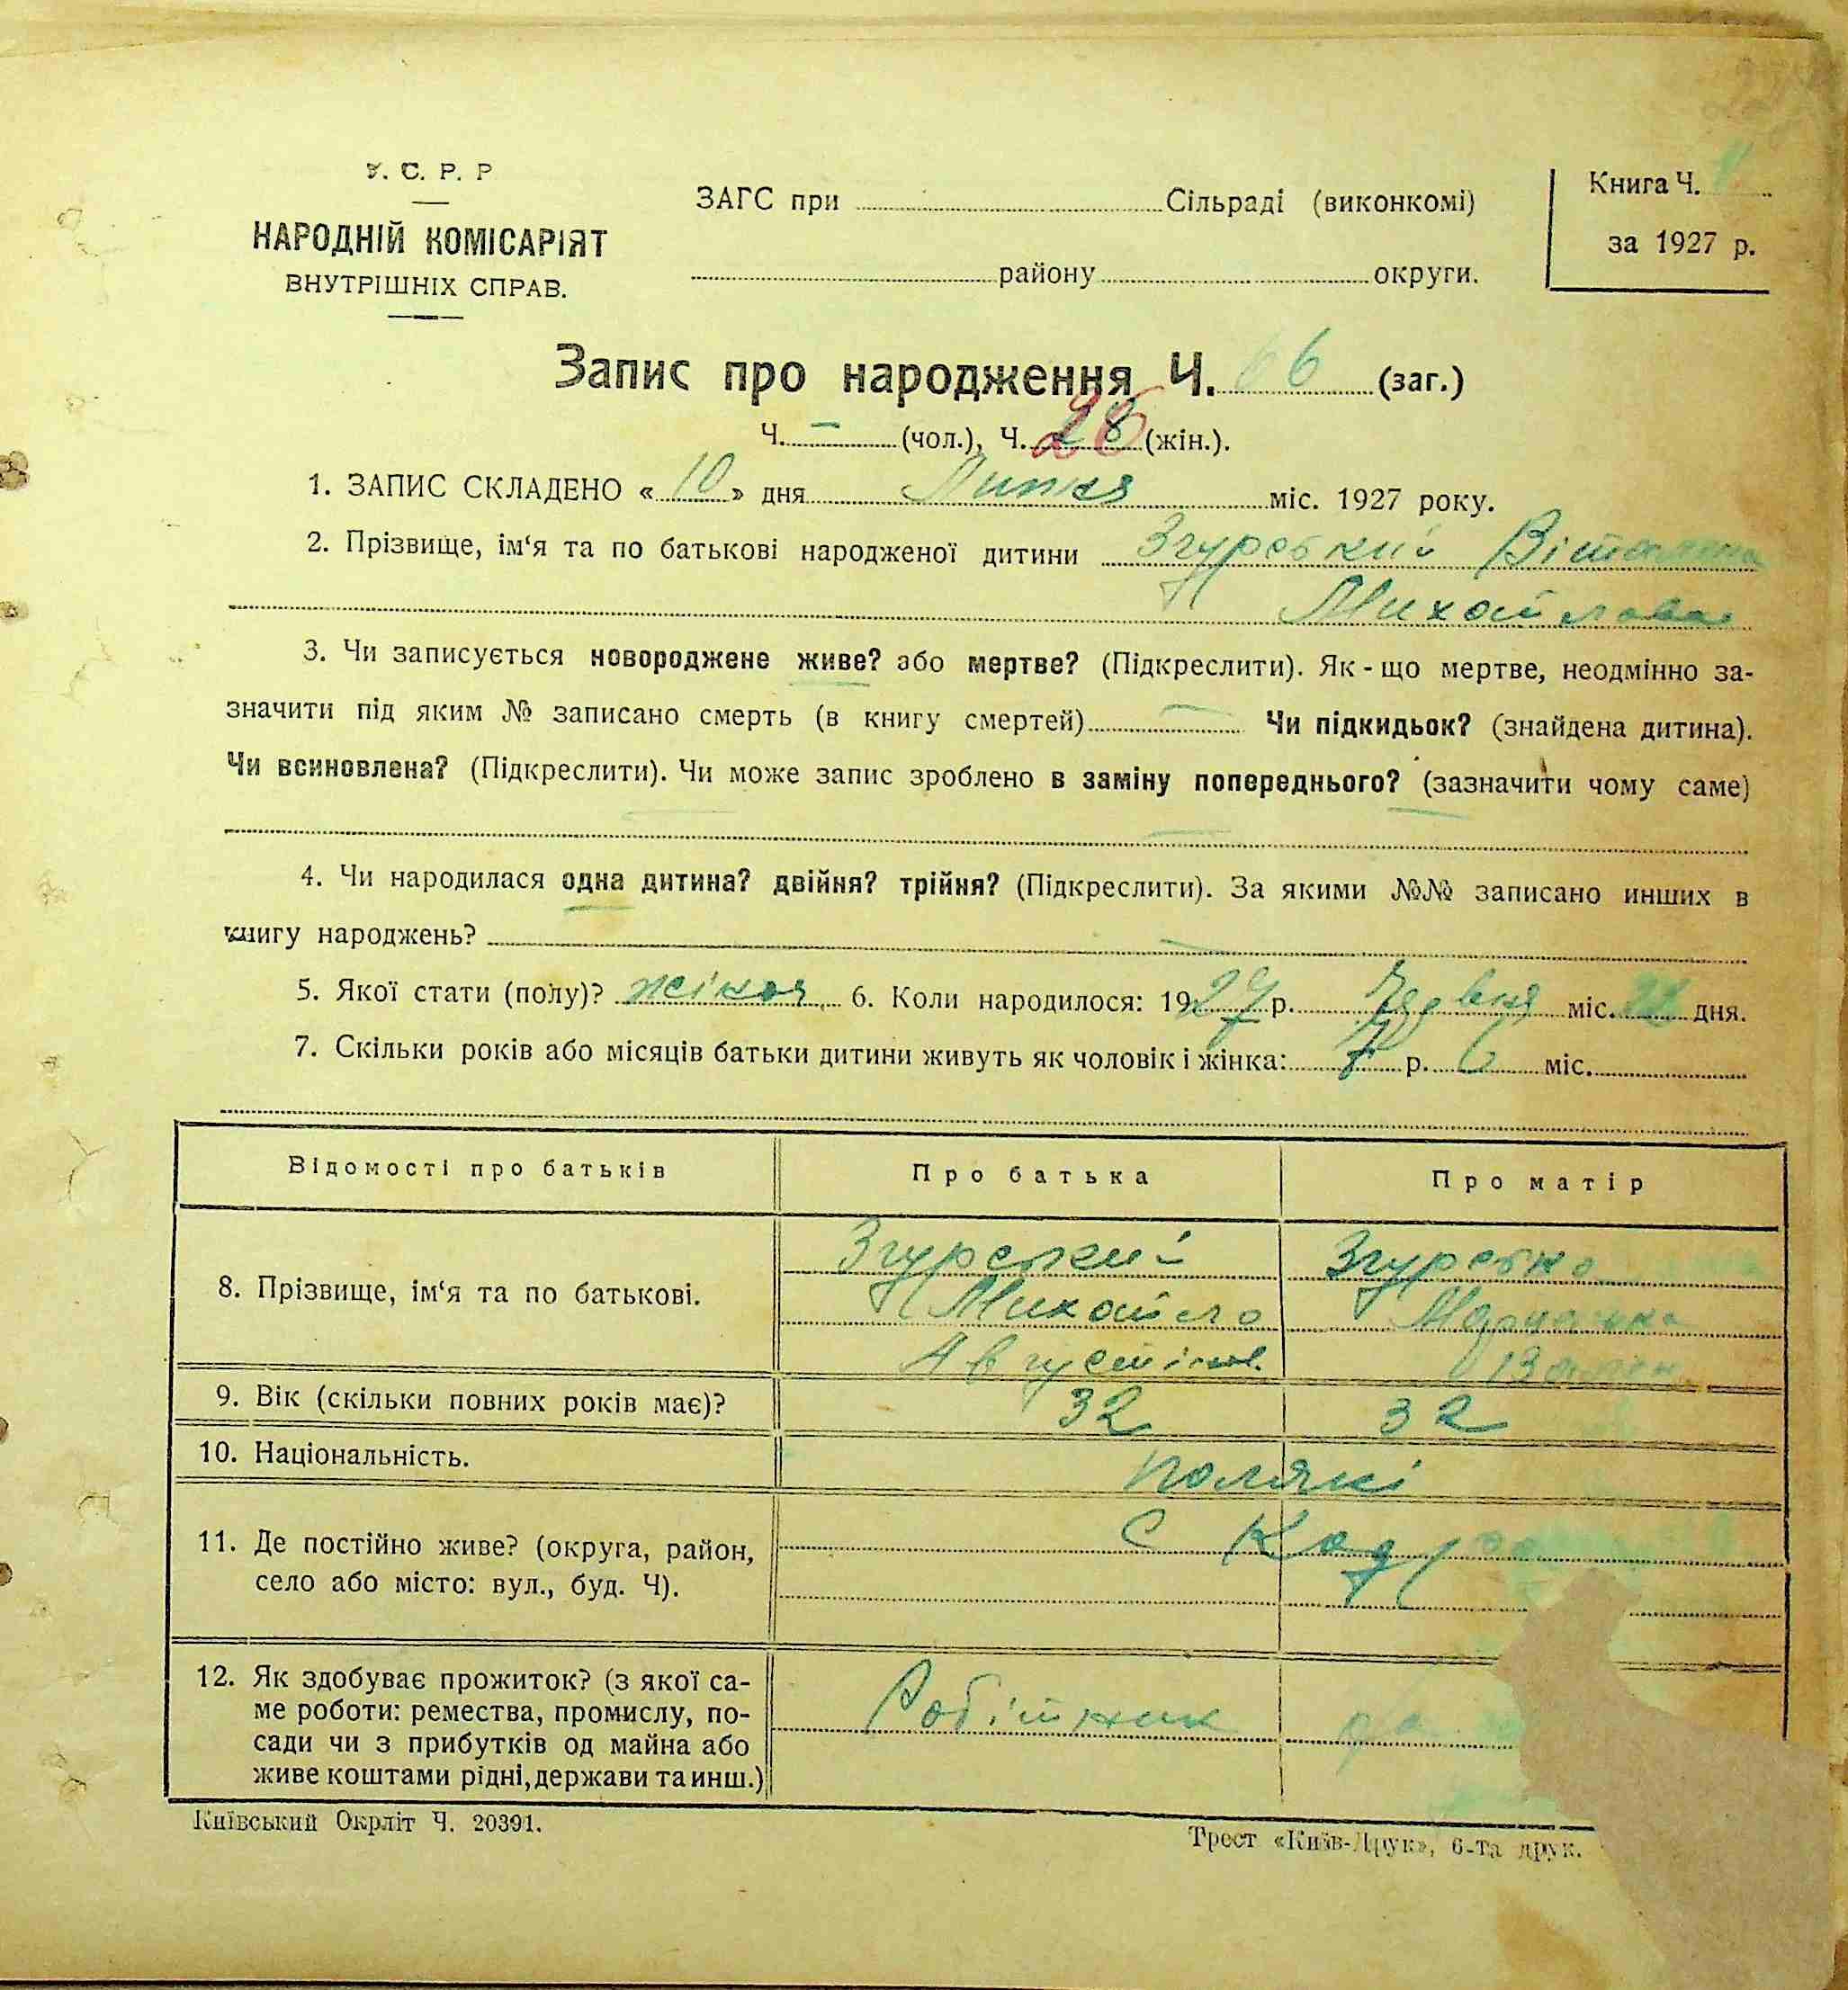 У. С. Р. Р
НАРОДНІЙ КОМІСАРІЯТ
ВНУТРІШНІХ СПРАВ.
ЗАГС при Сільраді (виконкомі)
району округи.
Книга Ч.
за 1927 р.
Запис про народження Ч. 66 (заг.)
Ч. – (чол.), Ч. 28 (жін.).
1. ЗАПИС СКЛАДЕНО « 10 » дня Липня міс. 1927 року.
2. Прізвище, ім‘я та по батькові народженої дитини Згурський
Михайлова
3. Чи записується новороджене живе? або мертве? (Підкреслити). Як - що мертве, неодмінно за-
значити під яким № записано смерть (в книгу смертей) — Чи підкидьок? (знайдена дитина).
Чи всиновлена? (Підкреслити). Чи може запис зроблено в заміну попереднього? (зазначити чому саме)
4. Чи народилася одна дитина? двійня? трійня? (Підкреслити). За якими №№ записано инших в
книгу народжень?
5. Якої стати (полу)? жіноч. 6. Коли народилося: 1927 р. Червня міс. дня.
7. Скільки років або місяців батьки дитини живуть як чоловік і жінка: р. 6 міс.
Відомості про батьків
Про батька
Про матір
8. Прізвище, ім‘я та по батькові.
Згурський
Михайло
Августінов.
Згурська
9. Вік (скільки повних років має)?
32
32
10. Національність.
поляки
11. Де постійно живе? (округа, район,
село або місто: вул., буд. Ч).
с
12. Як здобуває прожиток? (з якої са-
ме роботи: ремества, промислу, по-
сади чи з прибутків од майна або
живе коштами рідні, держави та инш.)
Робітник
Київський Окрліт Ч. 20391.
Трест «Київ-Друк», 6-та друк.